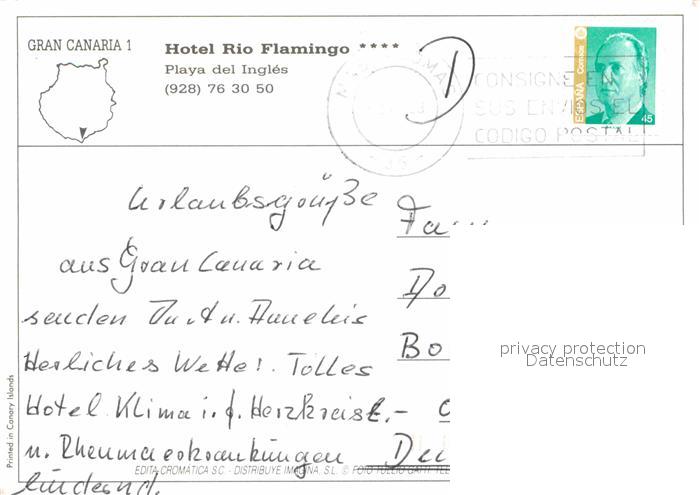 GRAN CANARIA 1
Hotel Rio Flamingo ****
Playa del Inglés
(928) 76 30 50
D
CONSIGNE EN
SUS ENVIOS EL
CODIGO POSTAL
ESPAÑA Correos
45
Urlaubsgrüße
aus Gran Canaria
senden
Herliches Wetter. Tolles
Hotel. Klima i. f. Herzkreisl.-
u. Rheumaerkrankungen
lindernd.
Fa...
Do
Bo
privacy protection
Datenschutz
Printed in Canary Islands
EDITA CROMÁTICA S.C. - DISTRIBUYE IMAGINA, S.L. © FOTO TULLIO GATTI TEL